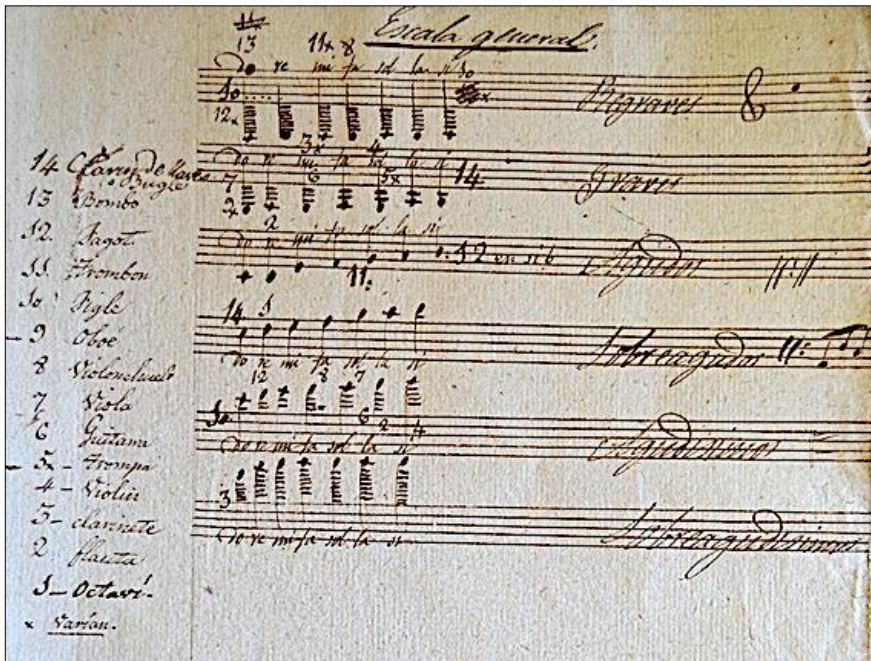 Escala general.
13 11x 8
Do re mi fa sol la si 10
10
12x
Regraves
3x 4
Do re mi fa sol la si
7 6 5x 14
2x
Graves
2
do re mi fa sol la si
11. 12 en sib
Agudos
14 1
Do re mi fa sol la si
Sobreagudos
12 8 7
10 6 2 4
Do re mi fa sol la si
Agudisimos
3
Do re mi fa sol la si
Sobreagudisimos
14 Clarin de llaves
o Bugle
13 Bombo
12. Fagot.
11. Trombon
10 Figle
9 Oboé
8 Violonchelo
7 Viola
6 Guitarra
5x - Trompa
4 - Violin
3 - clarinete
2 flauta
1 - Octaví.
x Varían.